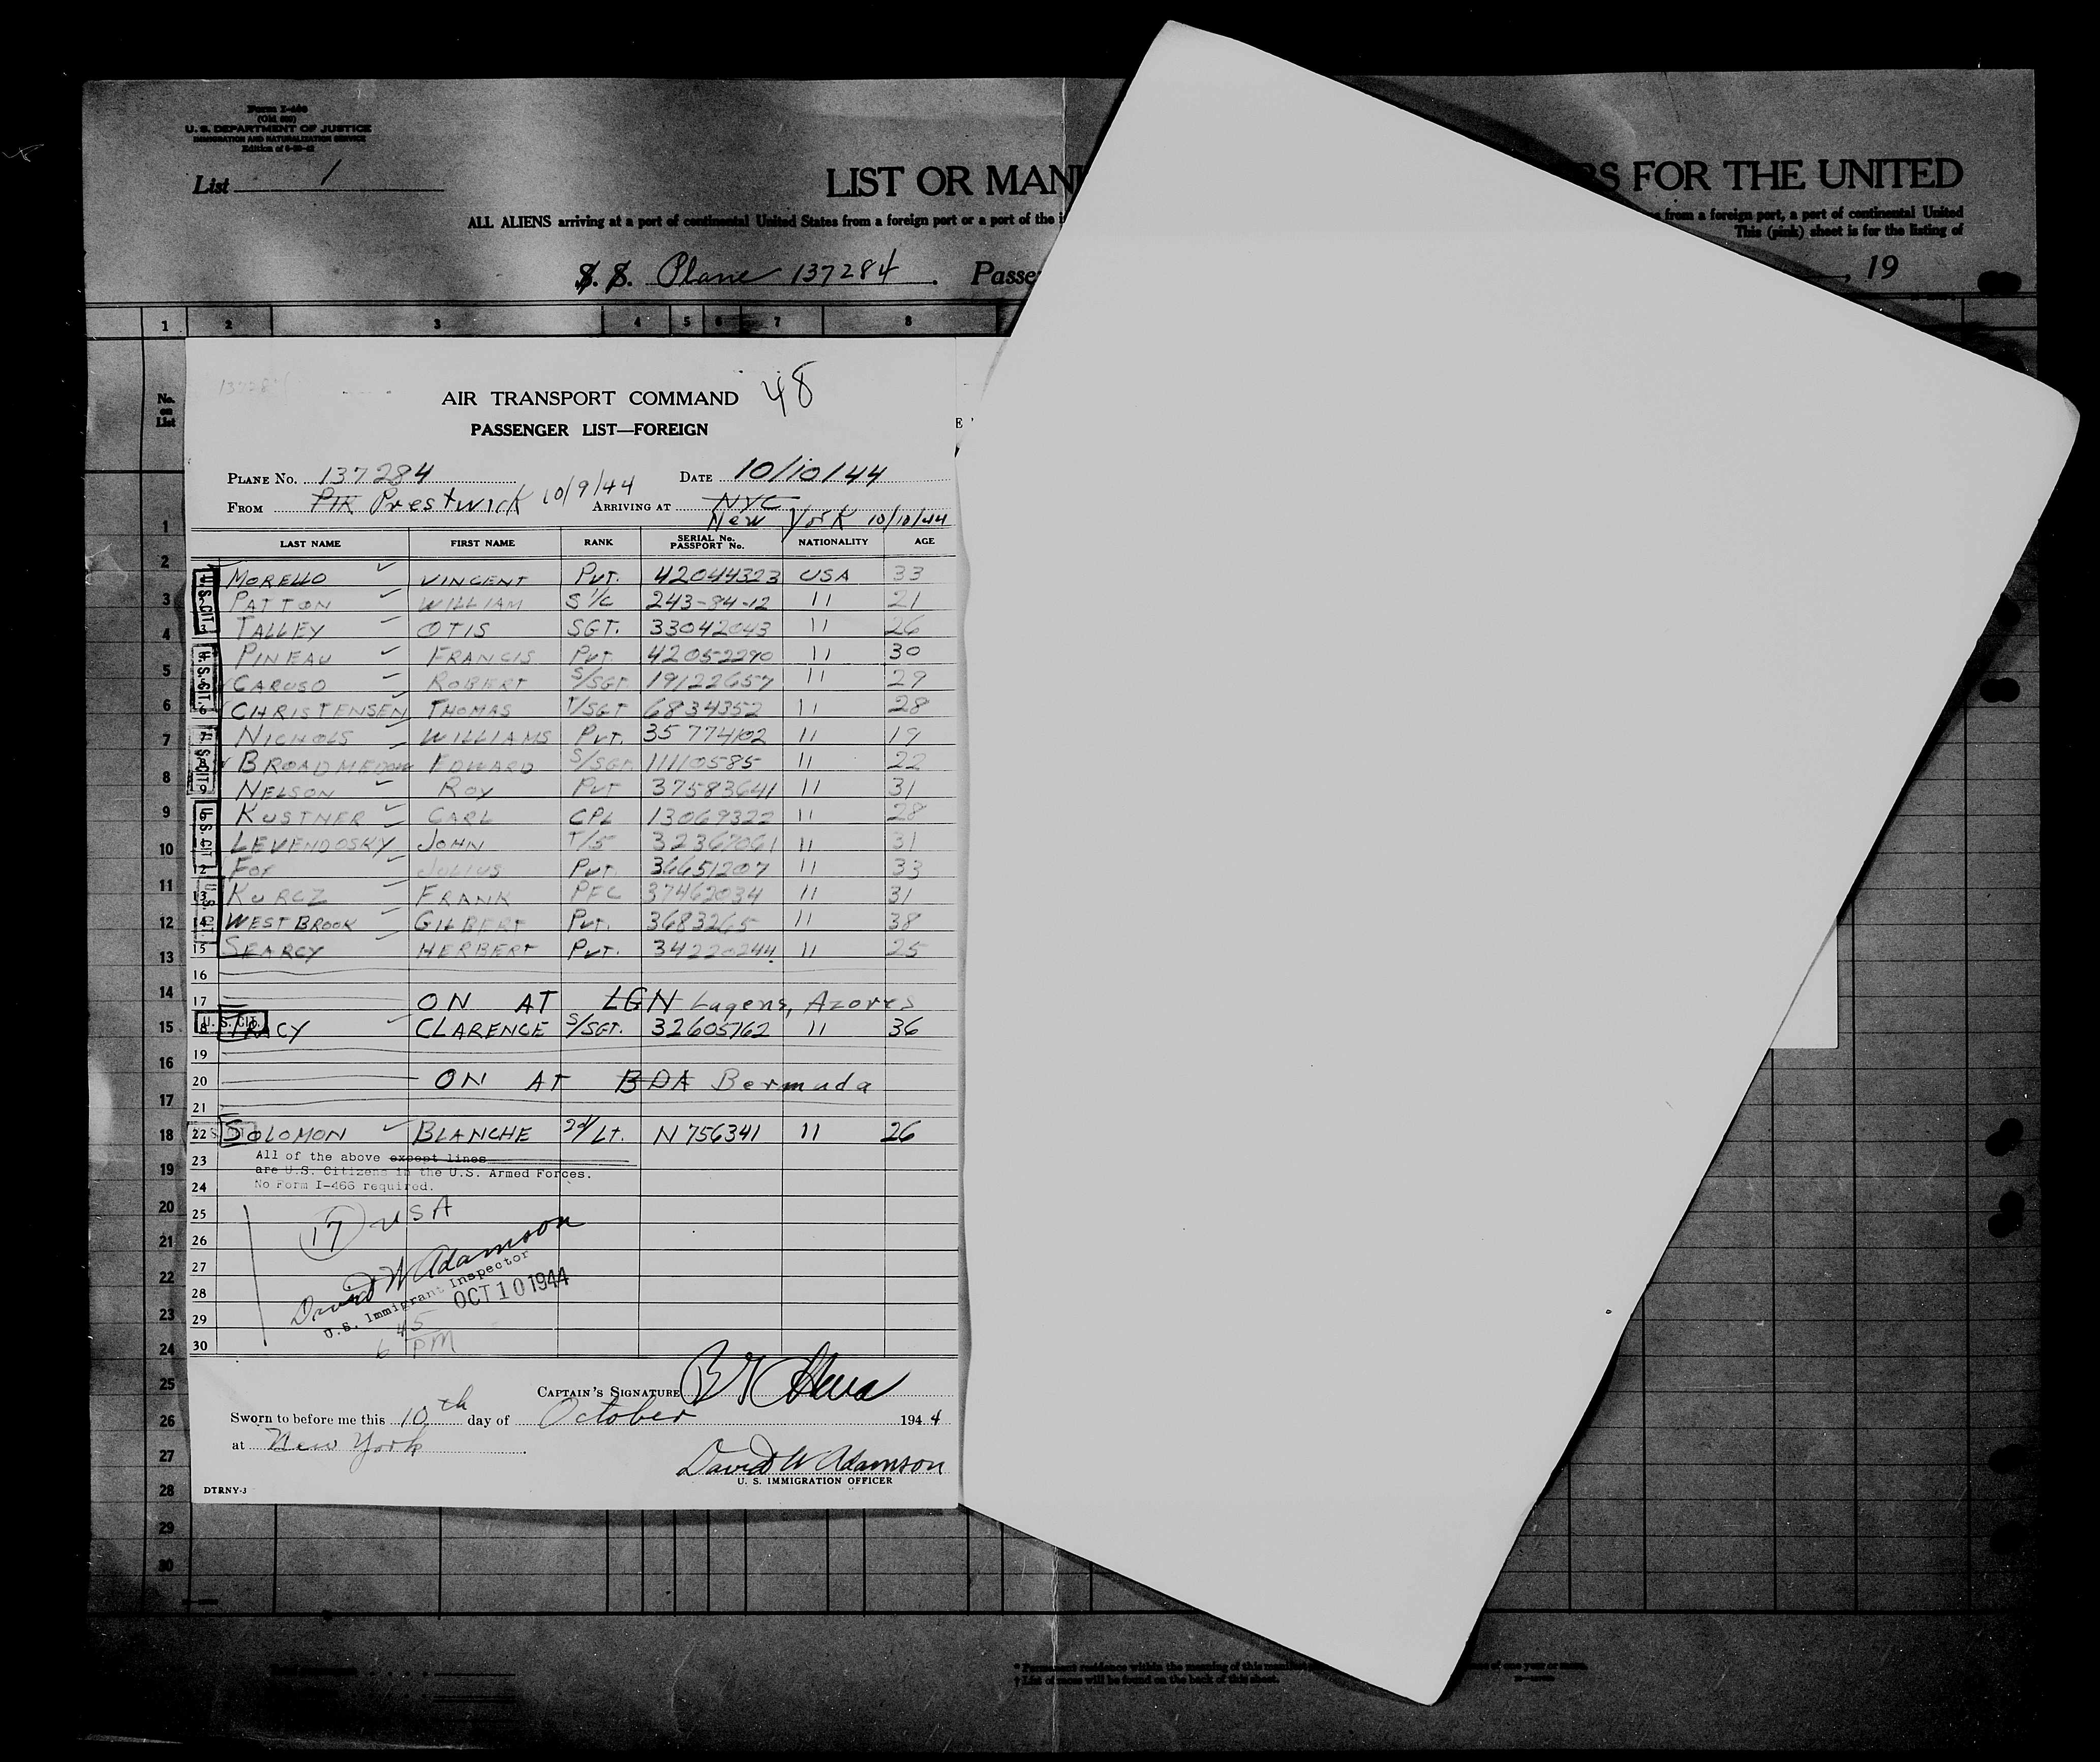 Form I-466
(Old 630)
U. S. DEPARTMENT OF JUSTICE
IMMIGRATION AND NATURALIZATION SERVICE
List 1
LIST OR MAN
RS FOR THE UNITED
ALL ALIENS arriving at a port of continental United States from a foreign port or a port of the i
from a foreign port, a port of continental United
This (pink) sheet is for the listing of
S. S. Plane 137284 . Passe
, 19
1 2 3 4 5 6 7 8
No. on List
AIR TRANSPORT COMMAND 48
PASSENGER LIST—FOREIGN
PLANE No. 137284 DATE 10/10/44
FROM PIK Prestwick 10/9/44 ARRIVING AT NYC
New York 10/10/44
LAST NAME FIRST NAME RANK SERIAL No. PASSPORT No. NATIONALITY AGE
MORELLO VINCENT Pvt. 42044323 USA 33
PATTON WILLIAM S 1/c 243-84-12 " 21
3 TALLEY OTIS SGT. 33042043 " 26
PINEAU FRANCIS Pvt. 42052290 " 30
CARUSO ROBERT S/SGT. 19122657 " 29
6 CHRISTENSEN THOMAS T/SGT 6834352 " 28
7 NICHOLS WILLIAMS Pvt. 35774102 " 19
8 BROADMEDOW EDWARD S/SGT. 11110585 " 22
9 NELSON ROY Pvt 37583641 " 31
KUSTNER CARL CPL 13069322 " 28
LEVENDOSKY JOHN T/5 32367061 " 31
12 FOX JULIUS Pvt. 36651207 " 33
13 KURCZ FRANK PFC 37462034 " 31
14 WESTBROOK GILBERT Pvt. 3683265 " 38
15 SEARCY HERBERT Pvt. 34220244 " 25
16
17 ON AT LGN Lagens, Azores
18 U. S. CIT. TRACY CLARENCE S/SGT. 32605762 " 36
19
20 ON AT BDA Bermuda
21
22 SOLOMON BLANCHE 2d/Lt. N 756341 " 26
23 All of the above except lines
are U.S. Citizens in the U.S. Armed Forces.
24 No Form I-466 required.
25 17 USA
26
27 David W Adamson
28 U.S. Immigrant Inspector
29 OCT 10 1944
30 6 45 PM
CAPTAIN'S SIGNATURE
Sworn to before me this 10th day of October 1944
at New York
David W Adamson
U. S. IMMIGRATION OFFICER
DTRNY-3
* Permanent residence within the meaning of this
of one year or more.
† List of races will be found on the back of this sheet.